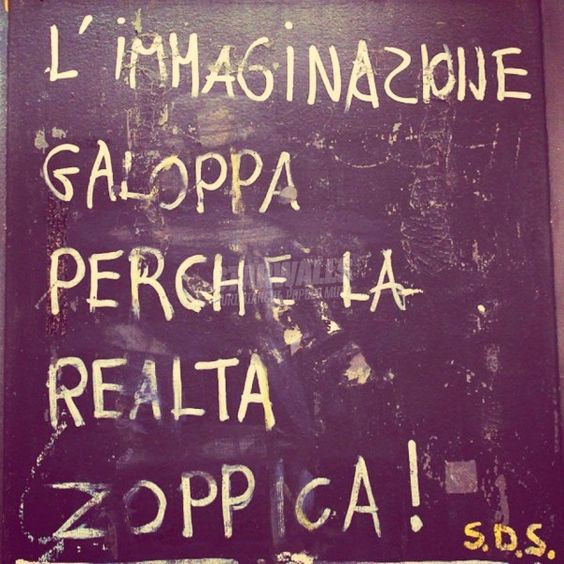 L'IMMAGINAZIONE
GALOPPA
PERCHE LA
REALTA
ZOPPICA!
S.D.S.